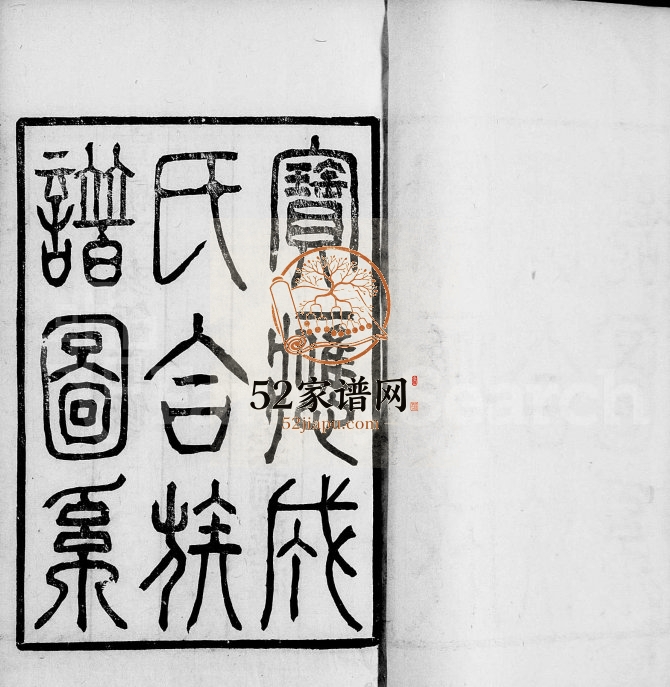 寶應成
氏合族
譜圖系
52家谱网
52jiapu.com